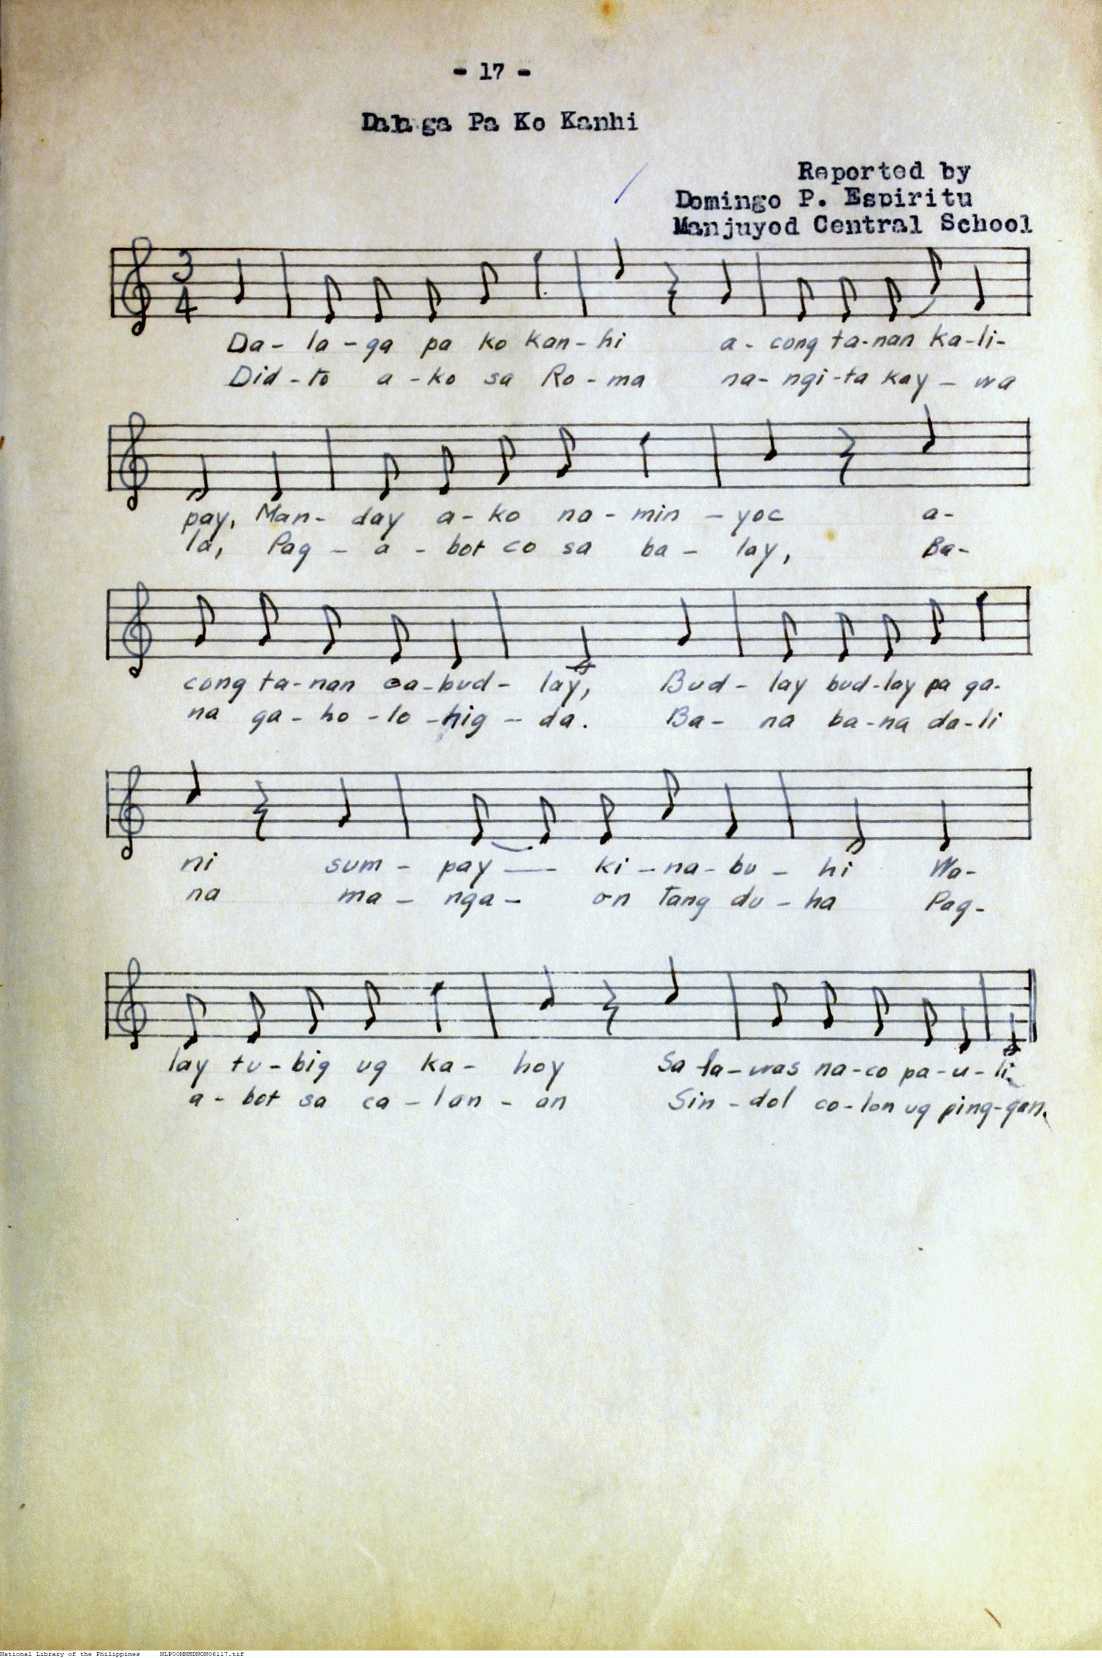 - 17 -
Dalaga Pa Ko Kanhi
Reported by
Domingo P. Espiritu
Manjuyod Central School
3
4
Da- la - ga pa ko kan - hi a - cong ta-nan ka-li-
Did - to a - ko sa Ro - ma na- ngi -ta kay - wa
pay, Man- day a- ko na - min - yoc a-
la, Pag - a - bot co sa ba - lay, Ba-
cong ta-nan ca-bud- lay, Bud- lay bud-lay pa ga-
na ga - ho - lo - hig - da. Ba- na ba-na da-li
ni sum - pay — ki - na - bu - hi Wa-
na ma - nga - on Tang du - ha Pag-
lay tu-big ug ka- hoy Sa la-was na-co pa-u-li.
a - bot sa ca - lan - an Sin - dol co-lon ug ping-gan.
National Library of the Philippines